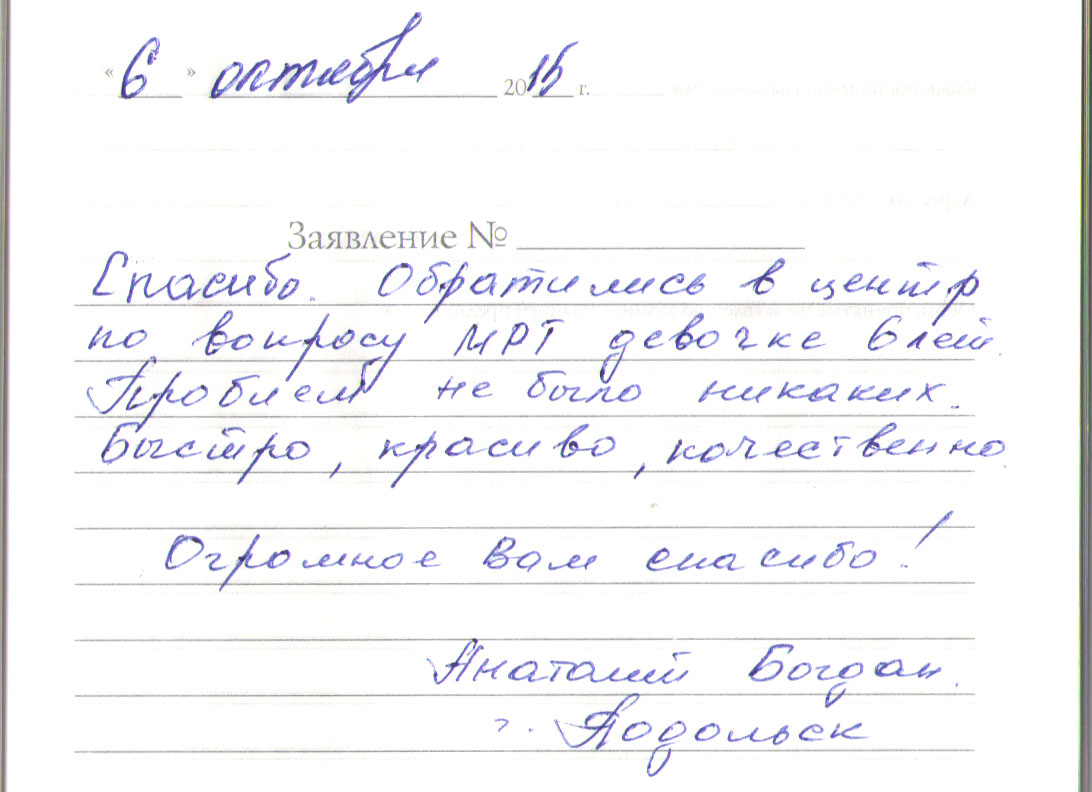 « 6 » октября 2015 г.
Заявление № ________
Спасибо. Обратились в центр
по вопросу МРТ девочке 6 лет.
Проблем не было никаких.
Быстро, красиво, качественно
Огромное Вам спасибо!
Анатолий Богдан.
г. Подольск